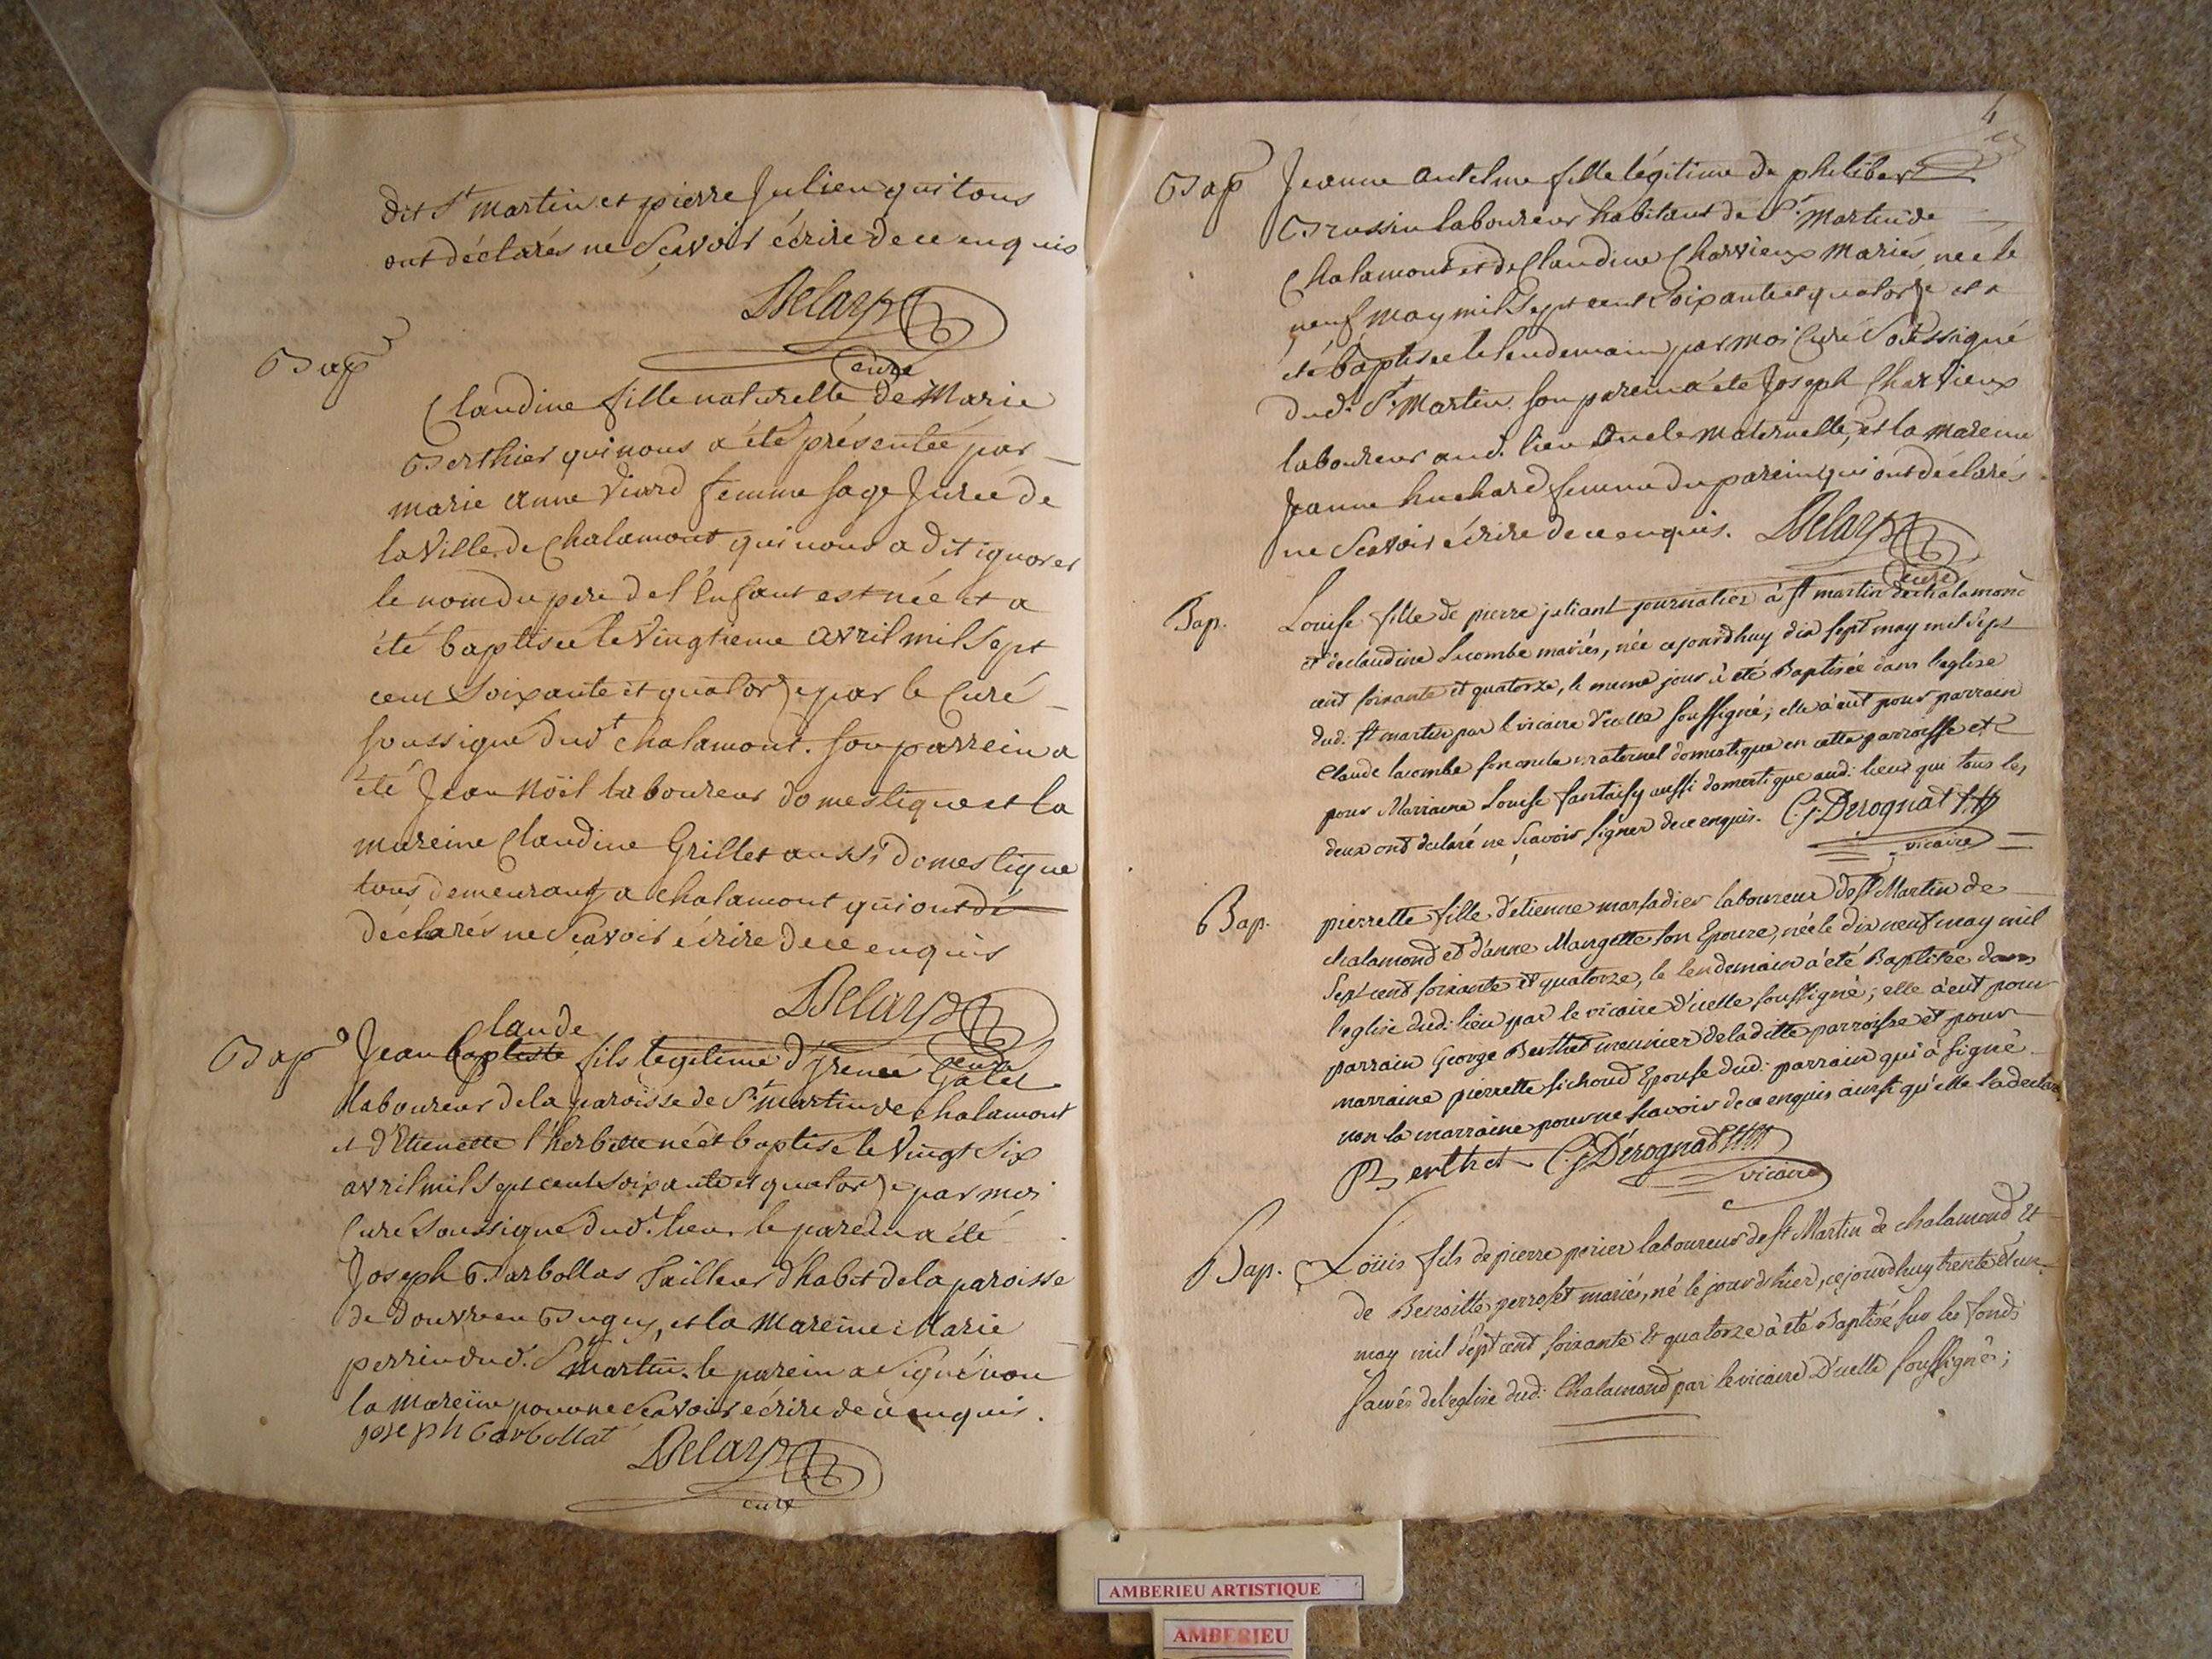 dit St martin et pierre Julien qui tous
ont déclarés ne Sçavoir écrire de ce enquis
Delarp
curé
Bap
Claudine fille naturelle de Marie
Berthier qui nous a été présentée par
marie anne Viard femme sage Jurée de
la Ville de Chalamont qui nous a dit ignorer
le nom du pere de l'Enfant est née et a
été baptisée le Vingtieme avril mil Sept
cent Soixante et quatorze par le Curé
soussigné dud't chalamont. son parrein a
été Jean Noël laboureur domestique et la
mareine Claudine Grillet aussi domestique
tous demeurants a chalamont qui ont dé
déclarés ne Sçavoir écrire de ce enquis
Delarp
curé
Bap
Claude
Jean Baptiste fils legitime d'Jrenée Galet
laboureur de la paroisse de St martin de chalamont
et d'Etienette l'herbette né et baptisé le Vingt Six
avril mil Sept cent Soixante et quatorze par moi
Curé Soussigné dud't lieu le parein a été
Joseph Barbollas Tailleur d'habit de la paroisse
de Douvre en Bugey, et la Mareine Marie
perrin dud. St martin. le parein a Signé non
la mareine pour ne Sçavoir écrire de ce enquis.
joseph barbollat
Delarp
curé
4
Bap
Jeanne Antelme fille légitime de philibert
Brussin laboureur habitant de St. Martin de
Chalamont et de Claudine Charvieux Mariés, née le
neuf may mil Sept cent Soixante et quatorze et a
été baptisée le lendemain par moi Curé Soussigné
dud. St. Martin. son parein a été Joseph Charvieux
laboureur aud. lieu Oncle Maternelle, et la mareine
Jeanne huchard femme du parein qui ont déclarés
ne Sçavoir écrire de ce enquis. Delarp
curé
Bap.
Louise fille de pierre juliant journalier à st martin de chalamond
et de claudine Lacombe mariés, née cejourdhuy dix sept may mil Sept
cent soixante et quatorze, le meme jour à été Baptisée dans l'eglise
dud. st martin par le vicaire d'icelle soussigné; elle à eut pour parrain
Claude lacombe son oncle maternel domestique en cette parroisse et
pour Marraine Louise fantaisy aussi domestique aud. lieux qui tous les
deux ont declaré ne sçavoir signer de ce enquis. C. j. Derognat
vicaire
Bap.
pierrette fille d'etienne marsadier laboureur de st Martin de
chalamond et d'anne Mangette son Epouze, née le dix neuf may mil
Sept cent soixante et quatorze, le lendemain à été Baptisée dans
l'eglise dud. lieu par le vicaire d'icelle soussigné; elle à eut pour
parrain George Berthet meunier de la ditte parroisse et pour
marraine pierrette sichoud Epouse dud. parrain qui à signé
non la marraine pour ne scavoir de ce enquis ainsi qu'elle la declaré
Berthet C. j. Dérognat
vicaire
Bap.
Loüis fils de pierre perier laboureur de st Martin de chalamond et
de Benoitte perroset mariés, né le jour d'hier, cejourdhuy trente et un
may mil Sept cent soixante et quatorze à été Baptisé sur les fonds
sacrés de l'eglise dud. Chalamond par le vicaire d'icelle soussigné;
AMBERIEU ARTISTIQUE
AMBERIEU